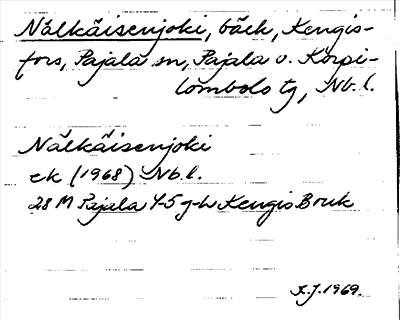 Nälkäisenjoki, bäck, Kengis-
fors, Pajala sn, Pajala o. Korpi-
lombolo tg, Nb.l.
Nälkäisenjoki
ek (1968) Nb.l.
28 M Pajala 4-5 g-h Kengis Bruk
1969.